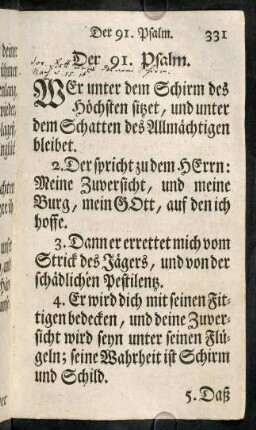 Der 91. Psalm. 331
Der 91. Psalm.
WEr unter dem Schirm des
Höchsten sitzet, und unter
dem Schatten des Allmächtigen
bleibet.
2. Der spricht zu dem HErrn:
Meine Zuversicht, und meine
Burg, mein GOtt, auf den ich
hoffe.
3. Dann er errettet mich vom
Strick des Jägers, und von der
schädlichen Pestilentz.
4. Er wird dich mit seinen Fit-
tigen bedecken, und deine Zuver-
sicht wird seyn unter seinen Flü-
geln; seine Wahrheit ist Schirm
und Schild.
5. Daß